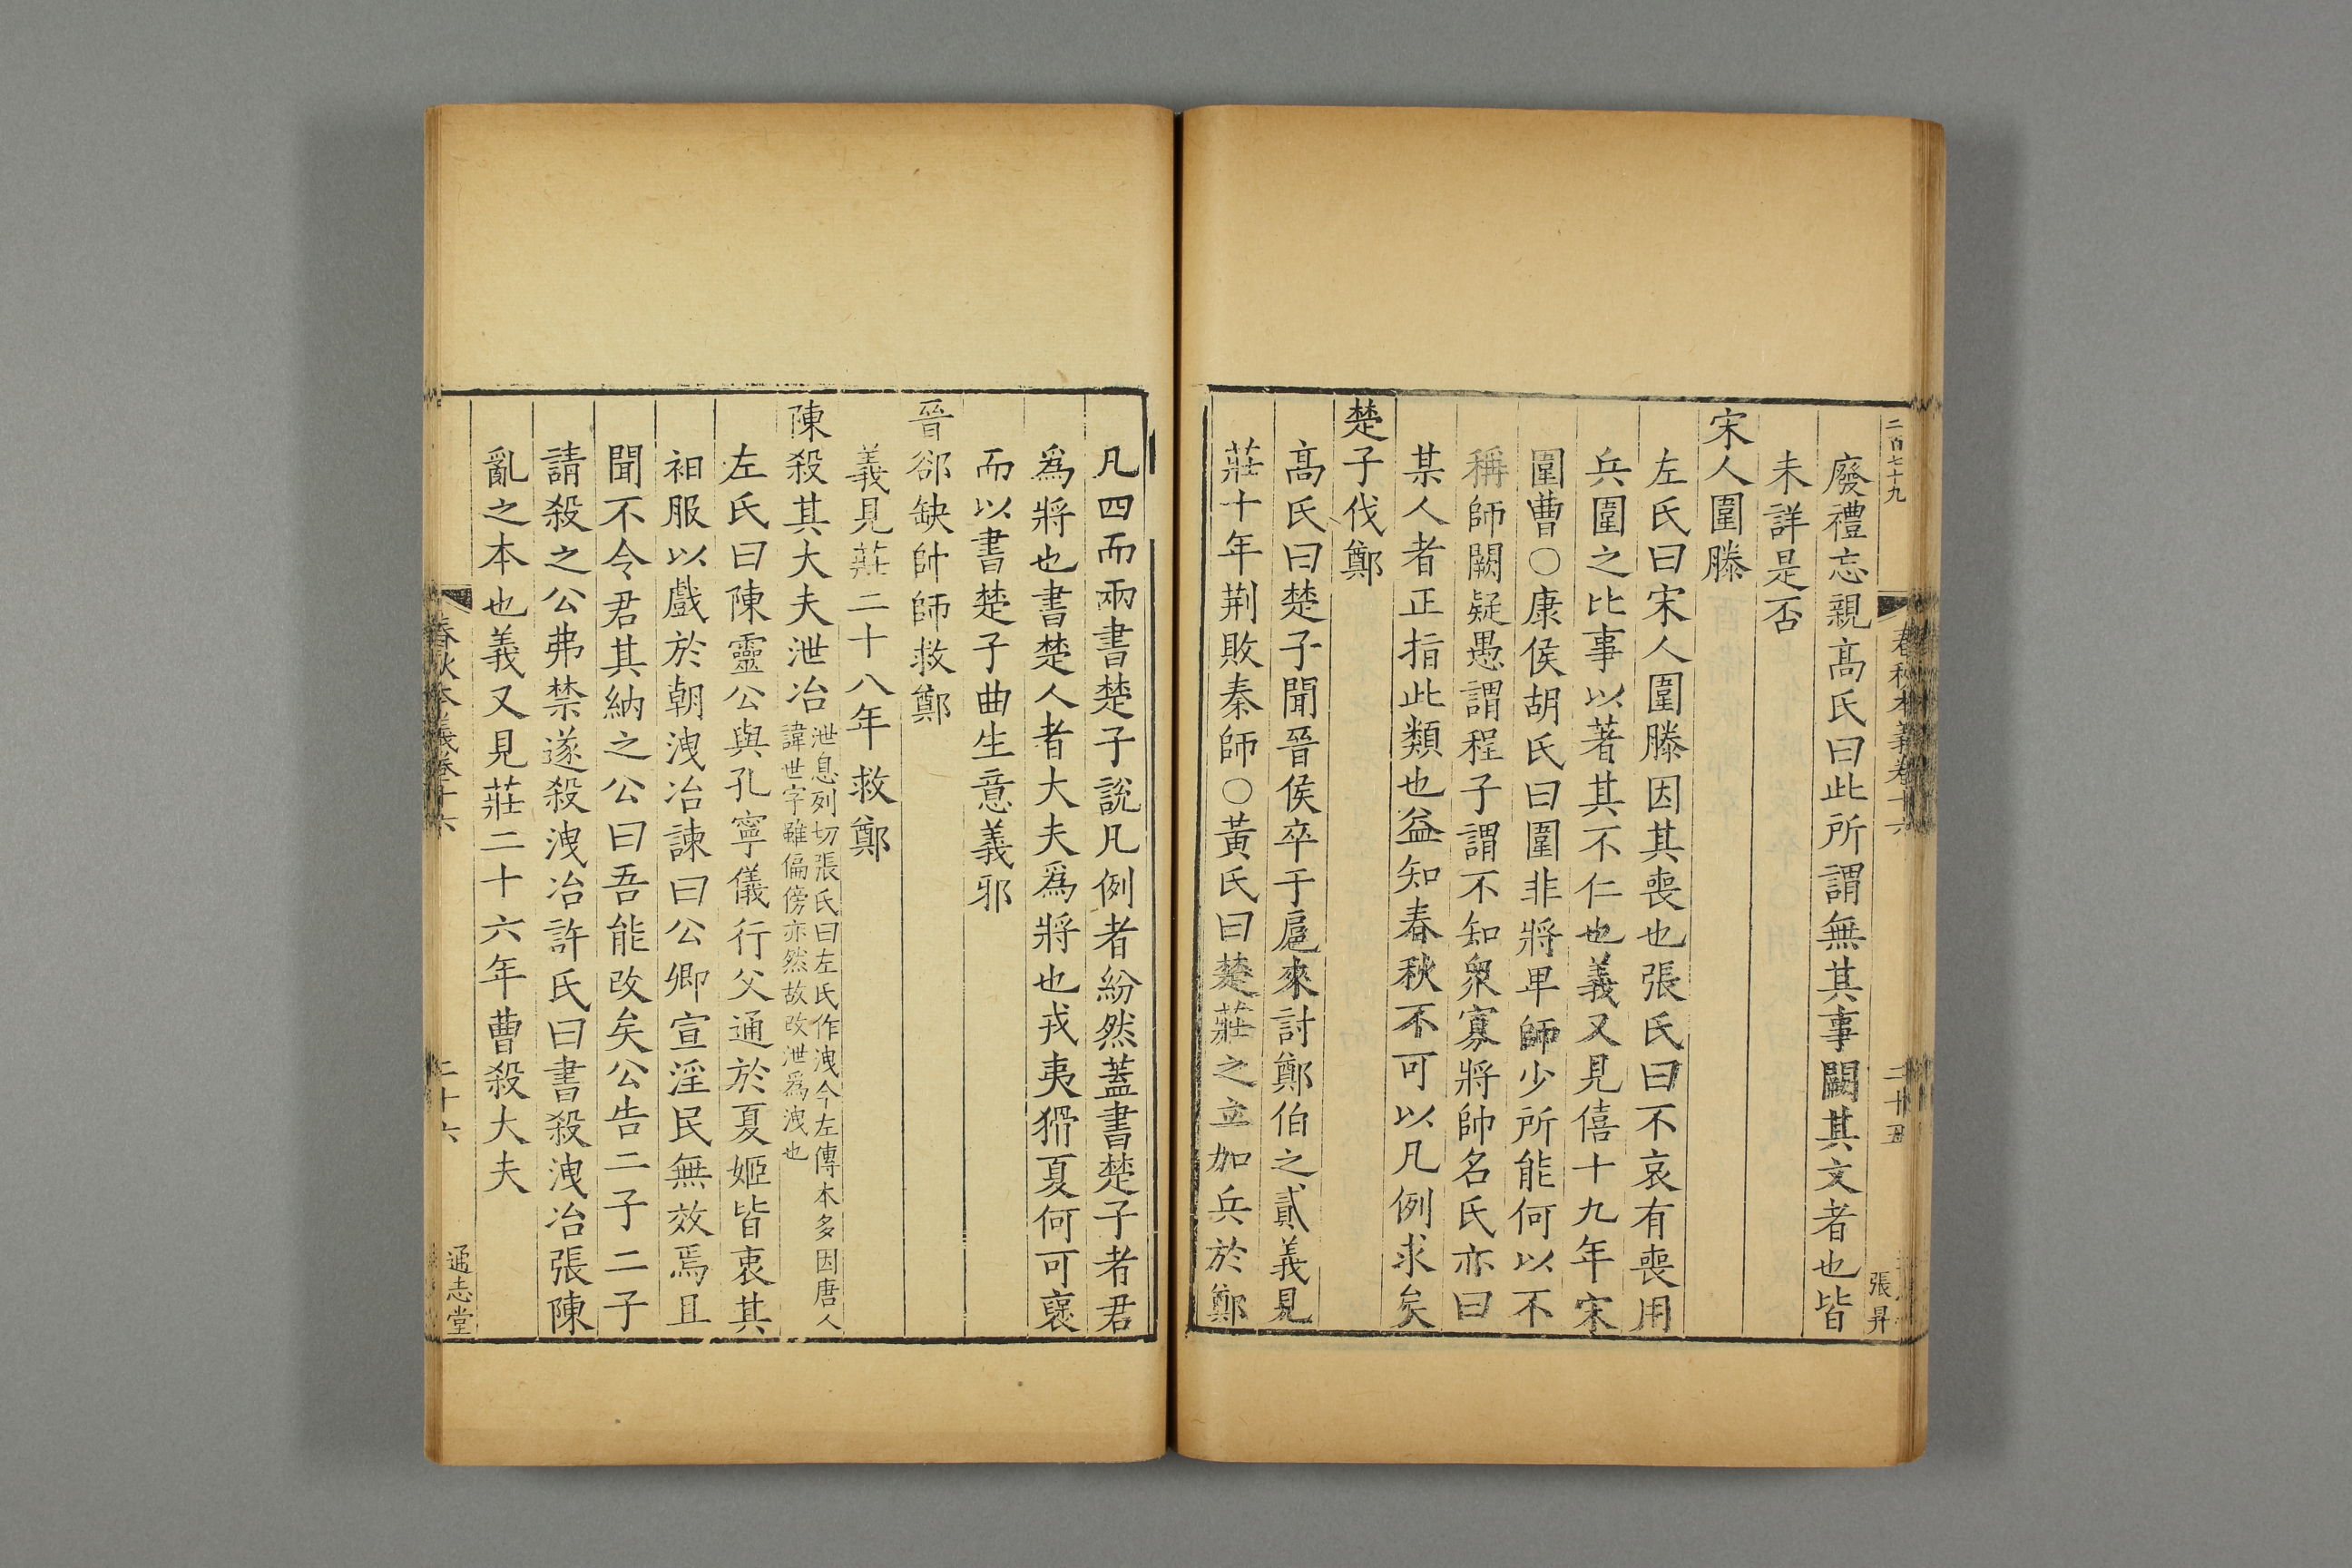 二百七十九
春秋本義卷十六
二十五
張昇
廢禮忘親髙氏曰此所謂無其事闕其文者也皆
未詳是否
宋人圍滕
左氏曰宋人圍滕因其喪也張氏曰不哀有喪用
兵圍之比事以著其不仁也義又見僖十九年宋
圍曹○康侯胡氏曰圍非將卑師少所能何以不
稱師闕疑愚謂程子謂不知衆寡將帥名氏亦曰
某人者正指此類也益知春秋不可以凡例求矣
楚子伐鄭
髙氏曰楚子聞晉侯卒于扈來討鄭伯之貳義見
莊十年荆敗秦師○黃氏曰楚莊之立加兵於鄭
凡四而兩書楚子說凡例者紛然蓋書楚子者君
爲將也書楚人者大夫爲將也戎夷猾夏何可襃
而以書楚子曲生意義邪
晉郤缺帥師救鄭
義見莊二十八年救鄭
陳殺其大夫泄冶
泄息列切張氏曰左氏作洩今左傳本多因唐人
諱世字雖偏傍亦然故改泄爲洩也
左氏曰陳靈公與孔寧儀行父通於夏姬皆衷其
衵服以戲於朝洩冶諫曰公卿宣淫民無效焉且
聞不令君其納之公曰吾能改矣公告二子二子
請殺之公弗禁遂殺洩冶許氏曰書殺洩冶張陳
亂之本也義又見莊二十六年曹殺大夫
春秋本義卷十六
二十六
通志堂